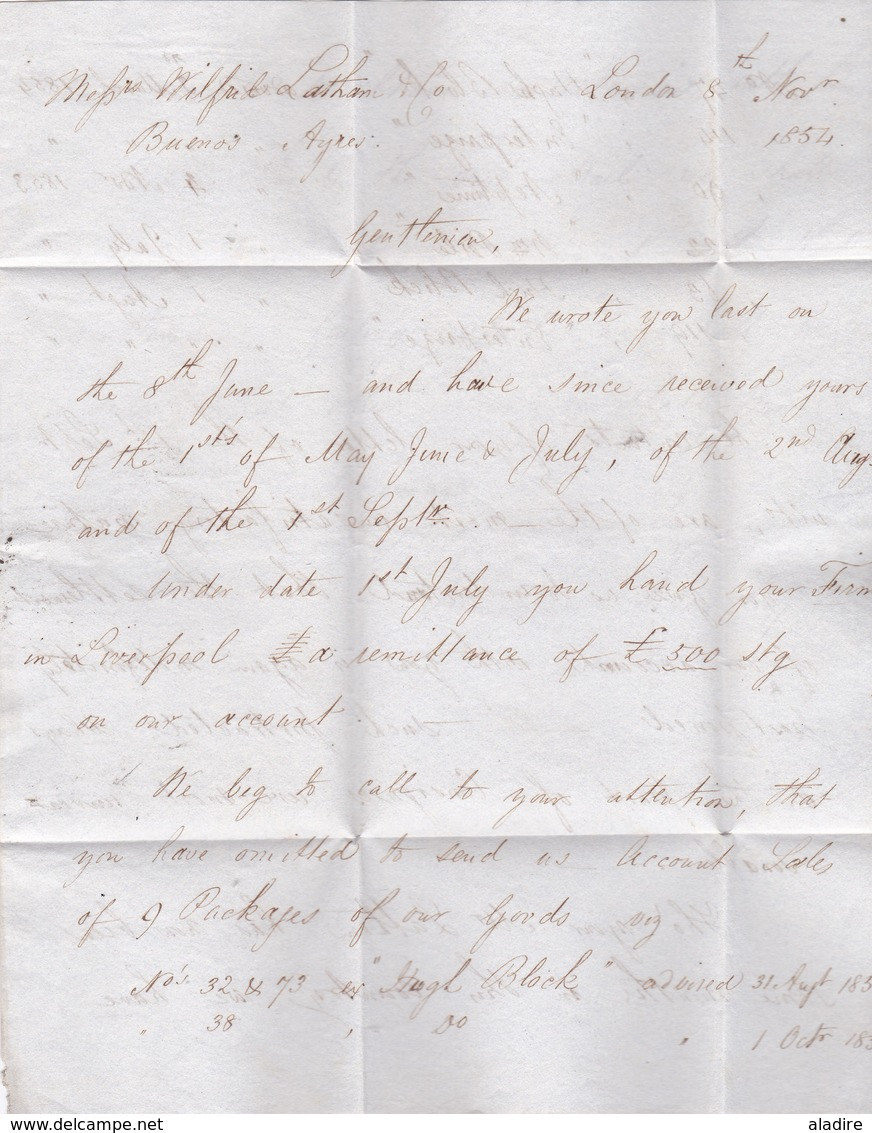 Messrs Wilfrid Latham & Co London 8th Novr
Buenos Ayres. 1854.
Gentlemen,
We wrote you last on
the 8th June — and have since received yours
of the 1st's of May June & July, of the 2nd Aug
and of the 1st Septr. —
Under date 1st July you hand your Firm
in Liverpool a remittance of £500 stg
on our account. —
We beg to call to your attention, that
you have omitted to send us Account Sales
of 9 Packages of our Goods viz
No's. 32 & 73 ex "Hugh Block" advised 31 Augt 185
" 38 , Do " 1 Octr 185
delcampe.net
aladire